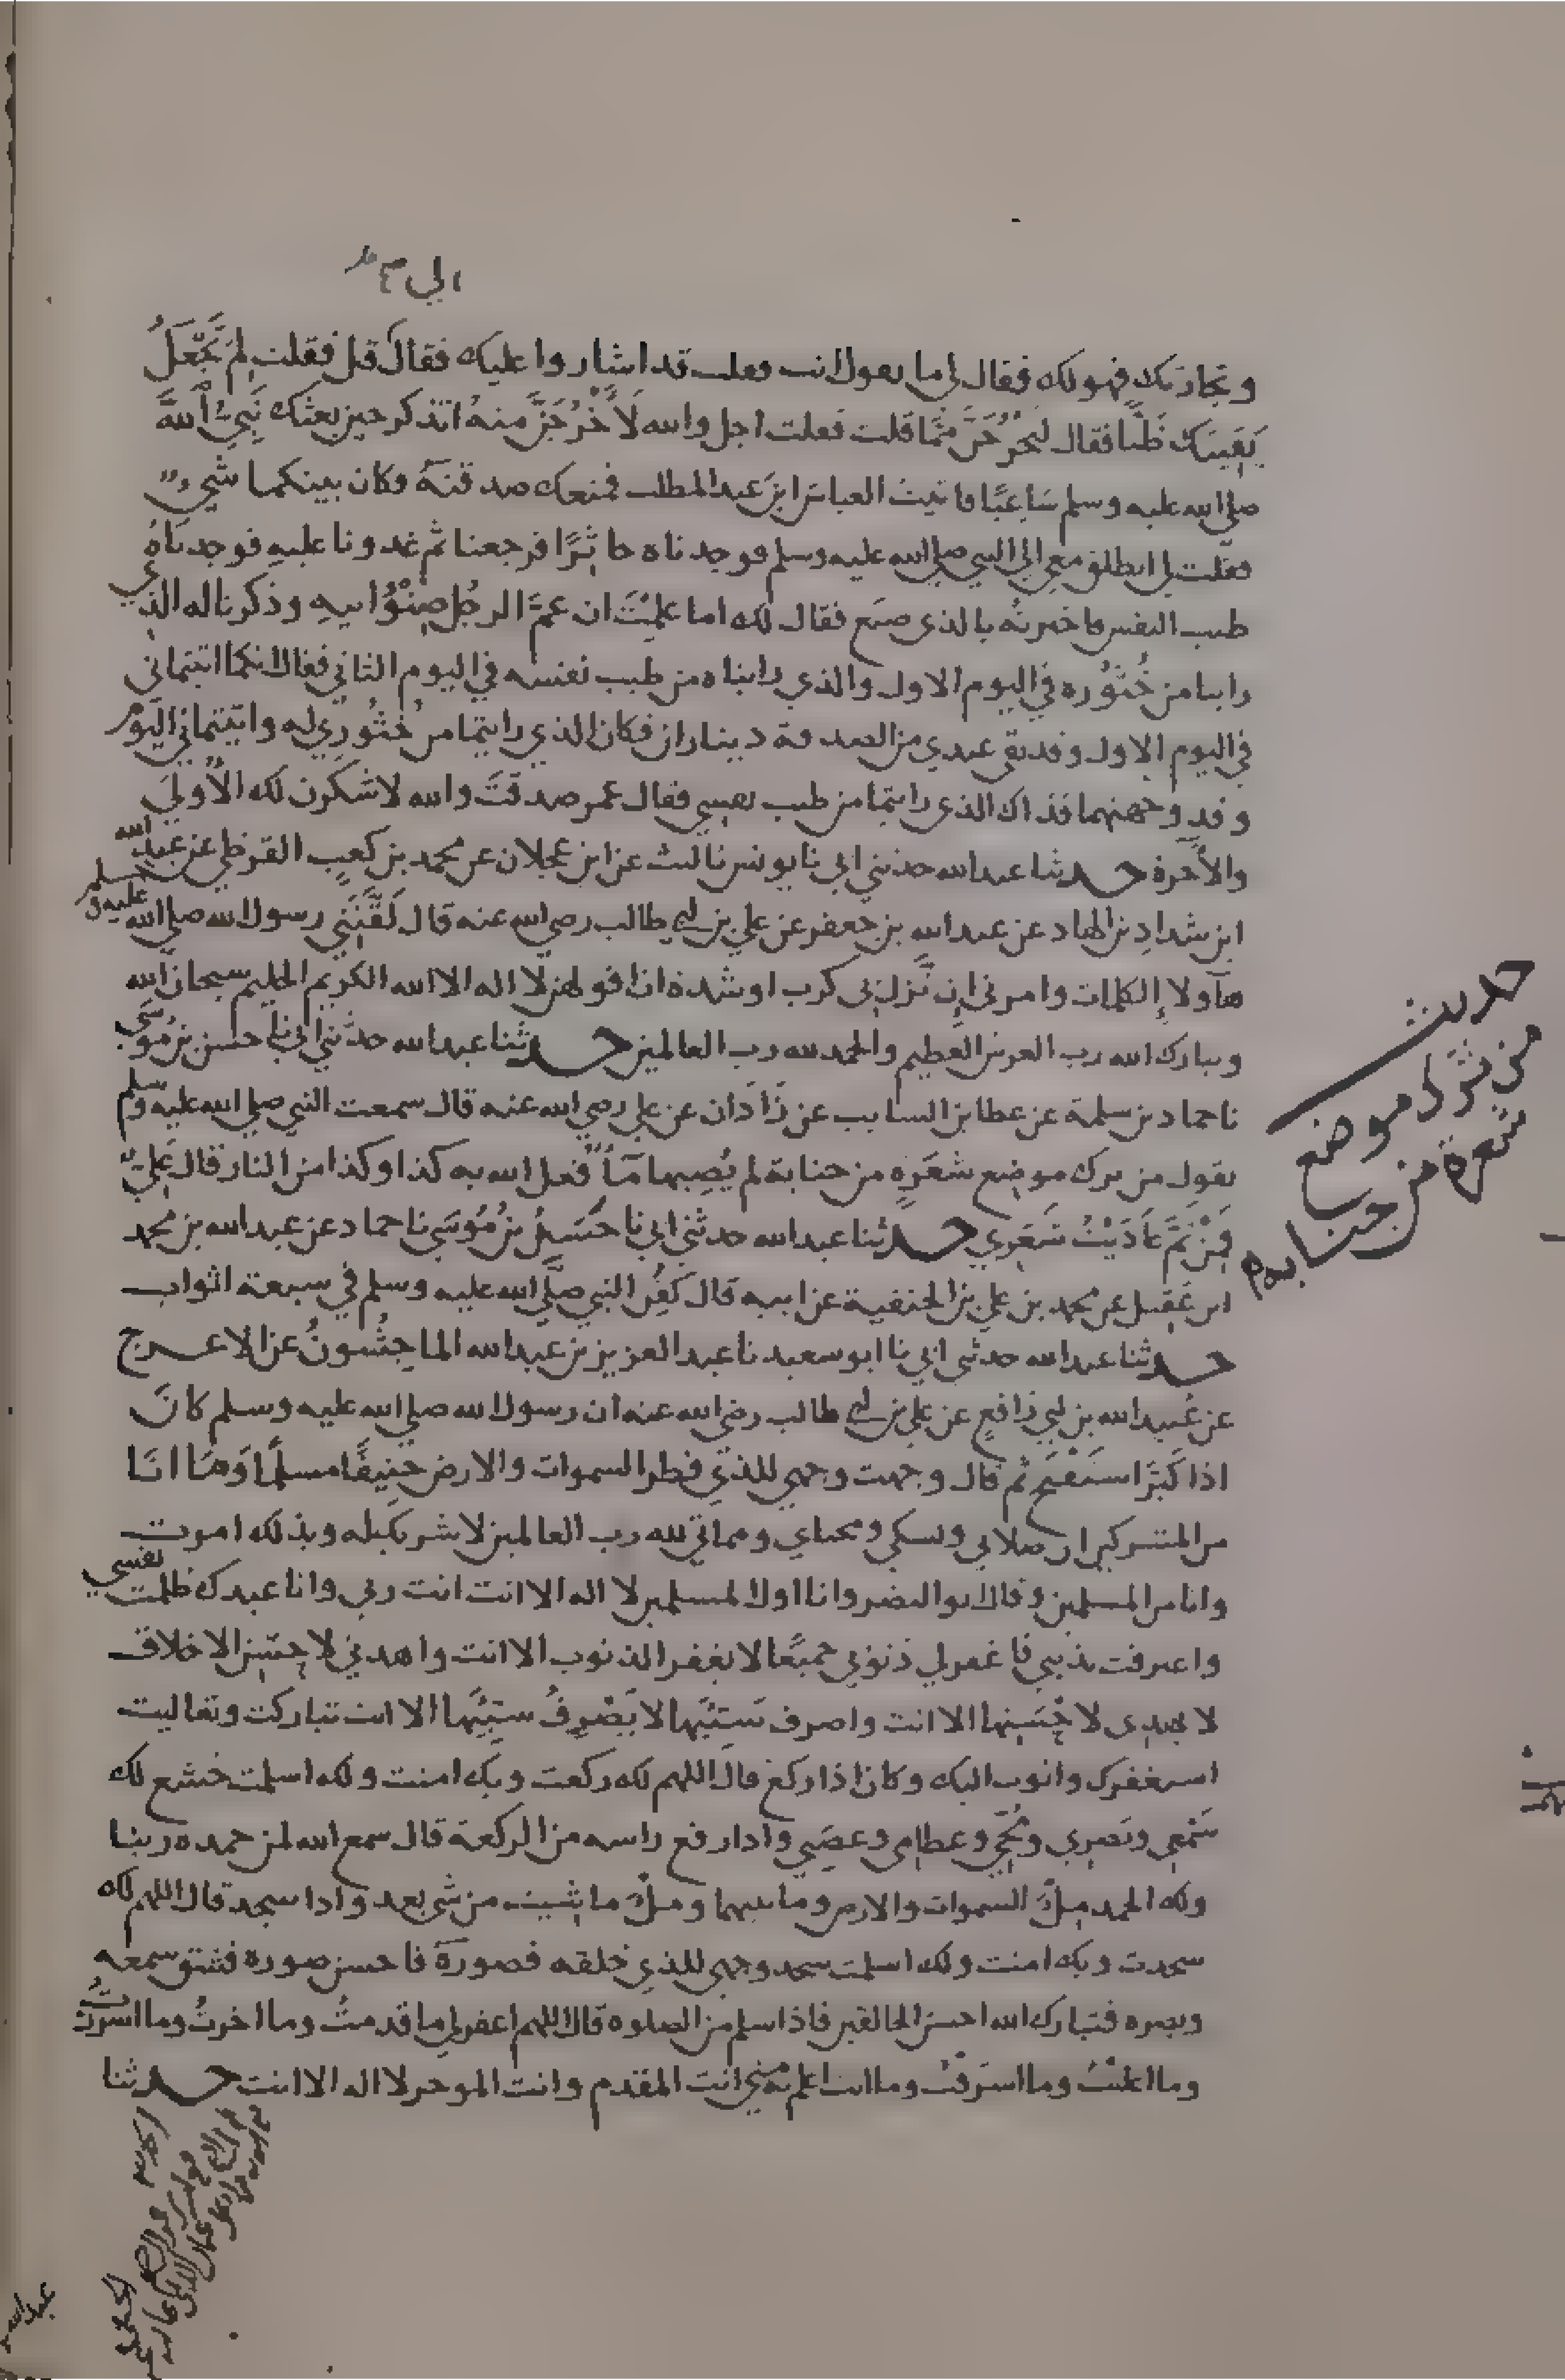 وتجارتك فهو لك فقال لي ما تقول انت فقلت قد اشاروا عليك فقال قل فقلت لم تجعل
يقينك ظنا فقال لتخرجن مما قلت فقلت اجل والله لاخرجن منه اتذكر حين بعثك نبي الله
صلى الله عليه وسلم ساعيا فاتيت العباس ابن عبد المطلب فمنعك صدقته فكان بينكما شيء
فقلت لي انطلق معي الى النبي صلى الله عليه وسلم فوجدناه خاثرا فرجعنا ثم غدونا عليه فوجدناه
طيب النفس فاخبرته بالذي صنع فقال لك اما علمت ان عم الرجل صنو ابيه وذكرنا له الذي
راينا من خثوره في اليوم الاول والذي رايناه من طيب نفسه في اليوم الثاني فقال انكما اتيتماني
في اليوم الاول وقد بقي عندي من الصدقة ديناران فكان الذي رايتما من خثوري له واتيتماني اليوم
وقد وجهتهما فذاك الذي رايتما من طيب نفسي فقال عمر صدقت والله لاشكرن لك الاولى
والاخرة حدثنا عبد الله حدثني ابي نا يونس نا ليث عن ابن عجلان عن محمد بن كعب القرظي عن عبد الله
ابن شداد بن الهاد عن عبد الله بن جعفر عن علي بن ابي طالب رضي الله عنه قال لقنني رسول الله صلى الله عليه وسلم
هاولاء الكلمات وامرني ان نزل بي كرب او شدة ان اقولهن لا اله الا الله الكريم الحليم سبحان الله
وتبارك الله رب العرش العظيم والحمد لله رب العالمين حدثنا عبد الله حدثني ابي نا حسن بن موسى
نا حماد بن سلمة عن عطا بن السايب عن زاذان عن علي رضي الله عنه قال سمعت النبي صلى الله عليه وسلم
يقول من ترك موضع شعره من جنابة لم يصبها ماء فعل الله به كذا وكذا من النار قال علي
فمن ثم عاديت شعري حدثنا عبد الله حدثني ابي نا حسن بن موسى نا حماد عن عبد الله بن محمد
ابن عقيل عن محمد بن علي بن الحنفية عن ابيه قال كفن النبي صلى الله عليه وسلم في سبعة اثواب
حدثنا عبد الله حدثني ابي نا ابو سعيد نا عبد العزيز بن عبد الله الماجشون عن الاعرج
عن عبيد الله بن ابي رافع عن علي بن ابي طالب رضي الله عنه ان رسول الله صلى الله عليه وسلم كان
اذا كبر استفتح ثم قال وجهت وجهي للذي فطر السموات والارض حنيفا مسلما وما انا
من المشركين ان صلاتي ونسكي ومحياي ومماتي لله رب العالمين لا شريك له وبذلك امرت
وانا من المسلمين وقال ابو النضر وانا اول المسلمين لا اله الا انت انت ربي وانا عبدك ظلمت نفسي
واعترفت بذنبي فاغفر لي ذنوبي جميعا لا يغفر الذنوب الا انت واهدني لاحسن الاخلاق
لا يهدي لاحسنها الا انت واصرف سيئها لا يصرف سيئها الا انت تباركت وتعاليت
استغفرك واتوب اليك وكان اذا ركع قال اللهم لك ركعت وبك امنت ولك اسلمت خشع لك
سمعي وبصري ومخي وعظامي وعصبي واذا رفع راسه من الركعة قال سمع الله لمن حمده ربنا
ولك الحمد ملء السموات والارض وما بينهما وملء ما شيت من شي بعد واذا سجد قال اللهم لك
سجدت وبك امنت ولك اسلمت سجد وجهي للذي خلقه فصوره فاحسن صوره فشق سمعه
وبصره فتبارك الله احسن الخالقين فاذا سلم من الصلوة قال اللهم اغفر لي ما قدمت وما اخرت وما اسررت
وما اعلنت وما اسرفت وما انت اعلم به مني انت المقدم وانت الموخر لا اله الا انت حدثنا
حديث
من ترك موضع
شعرة من جنابه
عبد الله